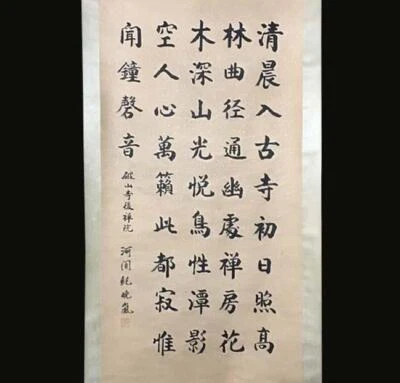 清晨入古寺初日照高
林曲径通幽處禅房花
木深山光悦鳥性潭影
空人心萬籟此都寂惟
聞鐘磬音 破山寺後禅院
河间紀曉嵐